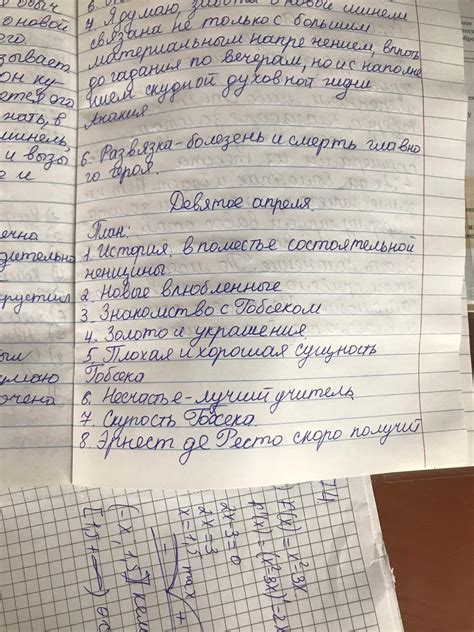 обыч
о новой
ого
зывает
он ку
ется го
жать, в
шинель,
и вызы
е и
ечно
дительно
рустил
ым
думаю
ючена
7. Я думаю, заботы о новой шинели
связана не только с большим
материальным напряжением, вплоть
до гадания по вечерам, но и с наполне
нием скудной духовной жизни
Акакия
6. Развязка-болезень и смерть главно
го героя.
Девятое апреля.
План:
1. История, в поместье состоятельной
женщины.
2. Новые влюбленные
3. Знакомство с Гобсеком
4. Золото и украшения
5. Плохая и хорошая сущность
Гобсека
6. Несчастье-лучший учитель
7. Скупость Гобсека.
8. Эрнест де Ресто скоро получит
f(x) = x²-3x
f'(x) = (x²-3x)' = 2x
2x-3=0
2x=3
x=1,5 max